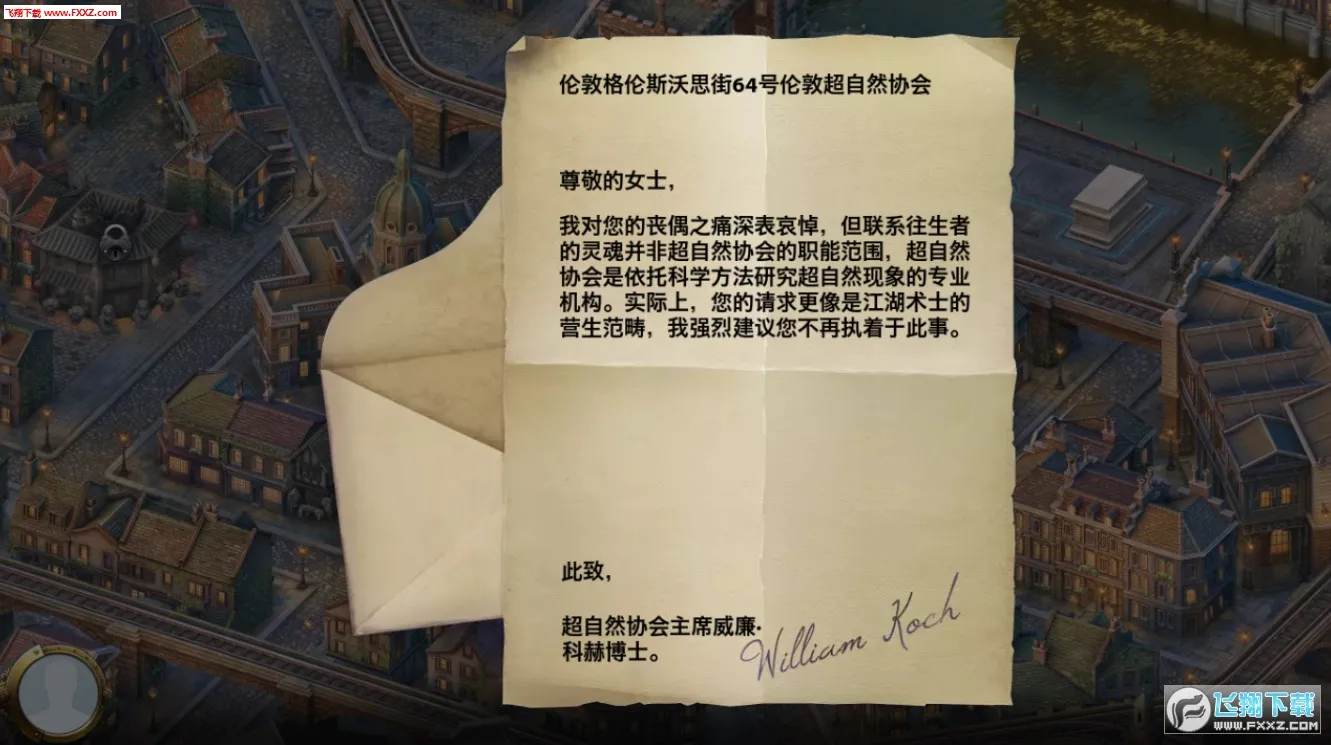 飞翔下载 www.FXXZ.com
伦敦格伦斯沃思街64号伦敦超自然协会
尊敬的女士，
我对您的丧偶之痛深表哀悼，但联系往生者
的灵魂并非超自然协会的职能范围，超自然
协会是依托科学方法研究超自然现象的专业
机构。实际上，您的请求更像是江湖术士的
营生范畴，我强烈建议您不再执着于此事。
此致，
超自然协会主席威廉·
科赫博士。
William Koch
飞翔下载
WWW.FXXZ.COM